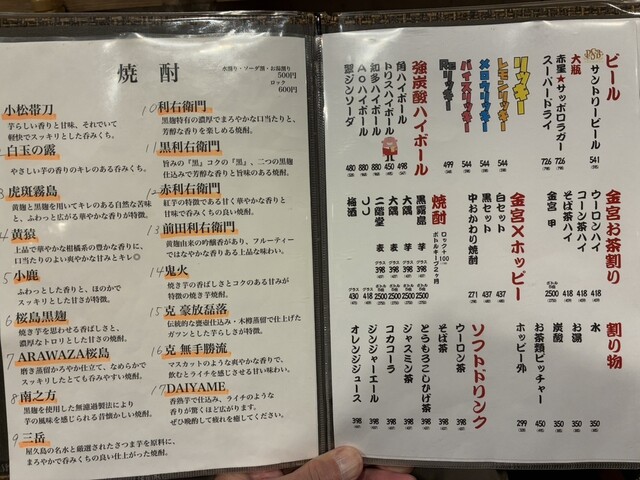 焼酎
水割り・ソーダ割・お湯割り
500円
ロック
600円
小松帯刀
芋らしい香りと甘味、それでいて
軽快でスッキリとした呑みくち。
2 白玉の露
やさしい芋の香りのキレのある呑みくち。
3 虎斑霧島
黄麹と黒麹を用いてキレのある自然な苦味
と、ふわっと広がる華やかな香りが特徴。
4 黄猿
上品で華やかな柑橘系の豊かな香りに、
口当たりのよい爽やかな甘みとキレ◎
5 小鹿
ふわっとした香りと、ほのかで
スッキリとした甘さが特徴。
6 桜島黒麹
焼き芋を思わせる香ばしさと、
濃厚なトロリとした甘さの焼酎。
7 ARAWAZA桜島
磨き蒸留かろやか仕立て、なめらかで
スッキリしたとても呑みやすい焼酎。
8 南之方
黒麹を使用した無濾過製法により
芋の風味を感じられる昔懐かしい焼酎。
9 三岳
屋久島の名水と厳選されたさつま芋を原料に、
まろやかで呑みくちの良い仕上がった焼酎。
10 利右衛門
黒麹特有の濃厚でまろやかな口当たりと、
芳醇な香りを楽しめる焼酎。
11 黒利右衛門
旨みの『黒』コクの『黒』、二つの黒麹
仕込みで芳醇な香りと旨味のある焼酎。
12 赤利右衛門
紅芋の特徴である甘く華やかな香りと
甘味で呑みくちの良い焼酎。
13 前田利右衛門
黄麹由来の吟醸香があり、フルーティー
ではなやかな香りある上品な味わい。
14 鬼火
焼き芋の香ばしさとコクのある甘みが
特徴の焼き芋焼酎。
15 克 豪放磊落
伝統的な甕壺仕込み・木樽蒸留で仕上げた
ガツンとした芋らしさが特徴。
16 克 無手勝流
マスカットのような爽やかな香りで、
飲むとライチを感じさせる甘い味わい。
17 DAIYAME
香熟芋で仕込み、ライチのような
香りが驚くほど広がります。
ぜひ晩酌で疲れを癒してください。
ビール
サントリービール 541
大瓶
赤星★サッポロラガー 726
スーパードライ 726
リッキー
レモンリッキー 544
メロウリッキー 544
バイスリッキー 544
リッキー 499
強炭酸ハイボール
角ハイボール 498
トリスハイボール 450
知多ハイボール 880
AOハイボール 880
翠ジンソーダ 480
金宮お茶割り
ウーロンハイ 418
コーン茶ハイ 418
そば茶ハイ 418
金宮 甲 ボトル 2500
金宮×ホッピー
白セット 437
黒セット 437
中おかわり焼酎 271
焼酎
ロック+100
ボトルキープ2ヶ月
黒霧島 芋 ボトル 2500
大隅 芋 グラス 398 ボトル 2500
大隅 麦 グラス 398 ボトル 2500
二階堂 麦 グラス 398 ボトル 2500
JJ グラス 418
梅酒 グラス 430
割り物
水 350
お湯 350
炭酸 350
お茶類ピッチャー 450
ホッピー外 299
ソフトドリンク
ウーロン茶 398
そば茶 398
とうもろこしひげ茶 398
ジャスミン茶 398
コカコーラ 398
ジンジャーエール 398
オレンジジュース 398